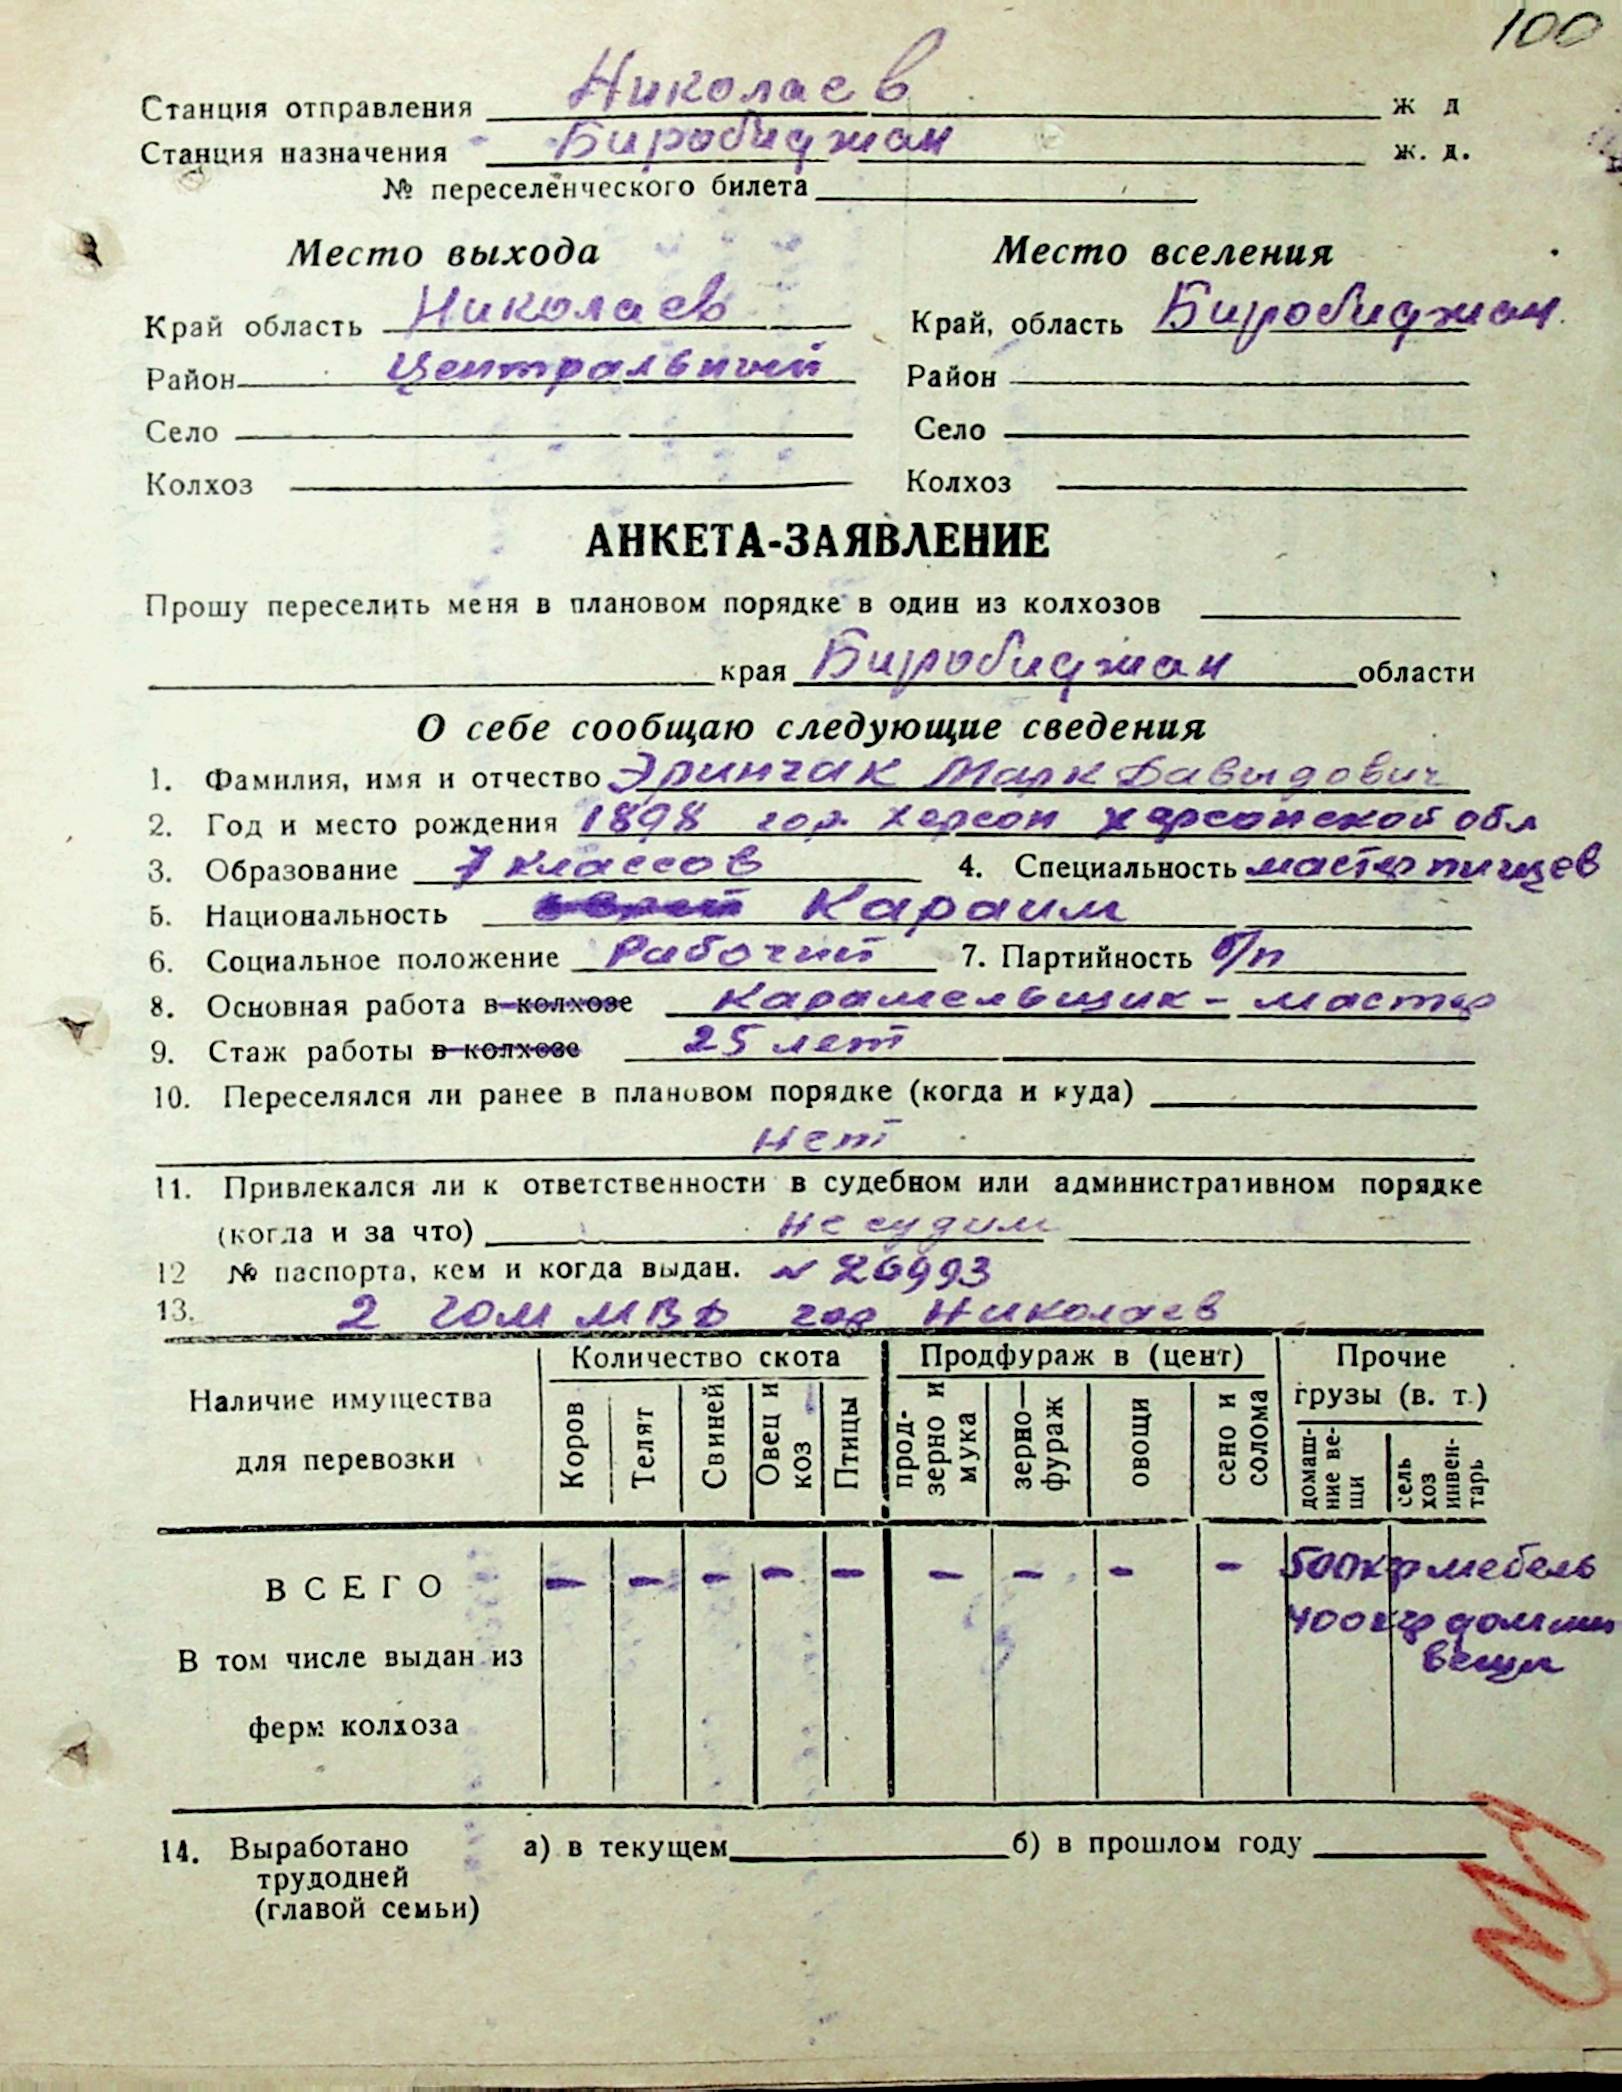 100
Станция отправления Николаев ж д
Станция назначения Биробиджан ж. д.
№ переселенческого билета
Место выхода
Место вселения
Край область Николаев
Край, область Биробиджан.
Район Центральный
Район
Село
Село
Колхоз
Колхоз
АНКЕТА-ЗАЯВЛЕНИЕ
Прошу переселить меня в плановом порядке в один из колхозов
края Биробиджан области
О себе сообщаю следующие сведения
1. Фамилия, имя и отчество Эринчак Марк Давыдович
2. Год и место рождения 1898 гор. Херсон Херсонской обл
3. Образование 7 классов 4. Специальность мастер пищев
5. Национальность Караим
6. Социальное положение Рабочий 7. Партийность б/п
8. Основная работа в колхозе Карамельщик - мастер
9. Стаж работы в колхозе 25 лет
10. Переселялся ли ранее в плановом порядке (когда и куда)
Нет
11. Привлекался ли к ответственности в судебном или административном порядке
(когда и за что) не судим
12 № паспорта, кем и когда выдан. №
13. 2 ГОМ МВД гор Николаев
Наличие имущества
для перевозки
Количество скота
Продфураж в (цент)
Прочие
грузы (в. т.)
Коров
Телят
Свиней
Овец и
коз
Птицы
прод-
зерно и
мука
зерно—
фураж
овощи
сено и
солома
домаш-
ние ве-
щи
сель
хоз
инвен-
тарь
ВСЕГО - - - - - - - - - 500кгр мебель
400кгр домаш
вещи
В том числе выдан из
ферм колхоза
14. Выработано а) в текущем б) в прошлом году
трудодней
(главой семьи)